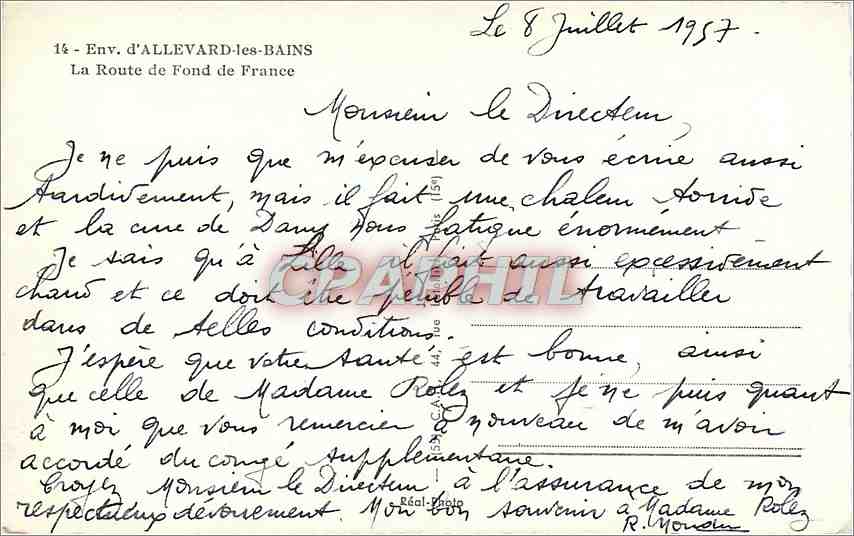 Le 8 Juillet 1957.
14 - Env. d'ALLEVARD-les-BAINS
La Route de Fond de France
Monsieur le Directeur,
Je ne puis que m'excuser de vous écrire aussi
tardivement, mais il fait une chaleur torride
et la cure de Dany nous fatigue énormément
Je sais qu'à Lille il fait aussi excessivement
chaud et ce doit être pénible de travailler
dans de telles conditions.
J'espère que votre santé est bonne, ainsi
que celle de Madame Rolez et je ne puis quant
à moi que vous remercier à nouveau de m'avoir
accordé du congé supplémentaire.
Croyez Monsieur le Directeur à l'assurance de mon
respectueux dévouement. Mon bon souvenir à Madame Rolez
R.
Réal-Photo
CPAPHIL